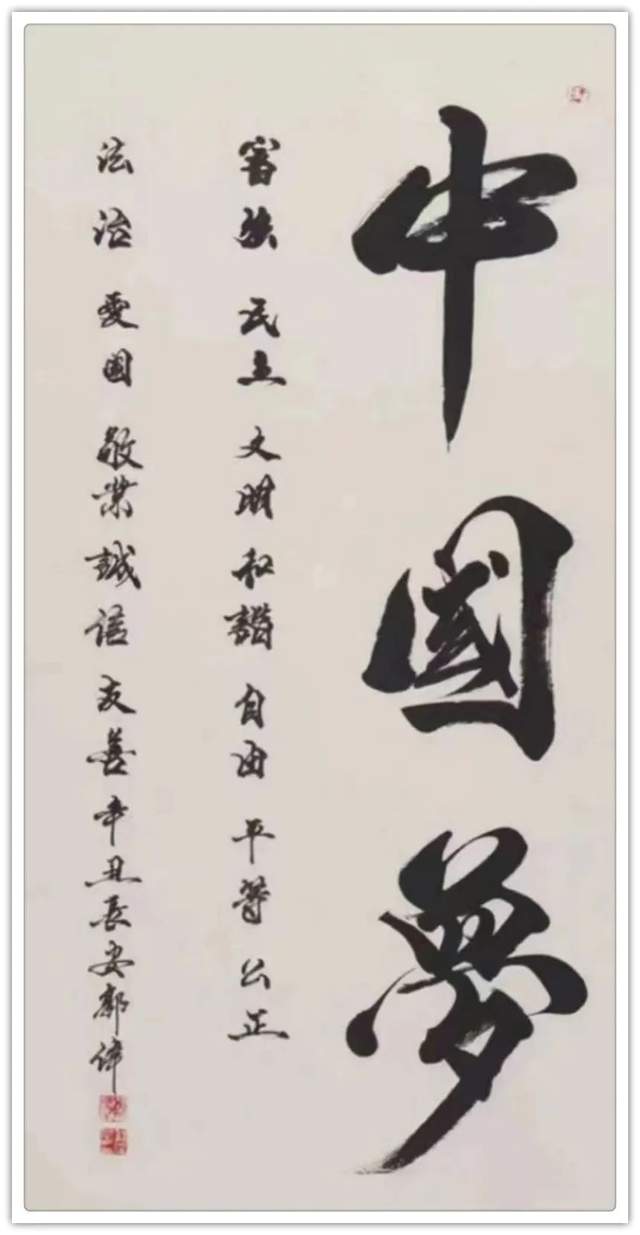 中國夢
富強 民主 文明 和諧 自由 平等 公正
法治 愛國 敬業 誠信 友善 辛丑長安郭偉